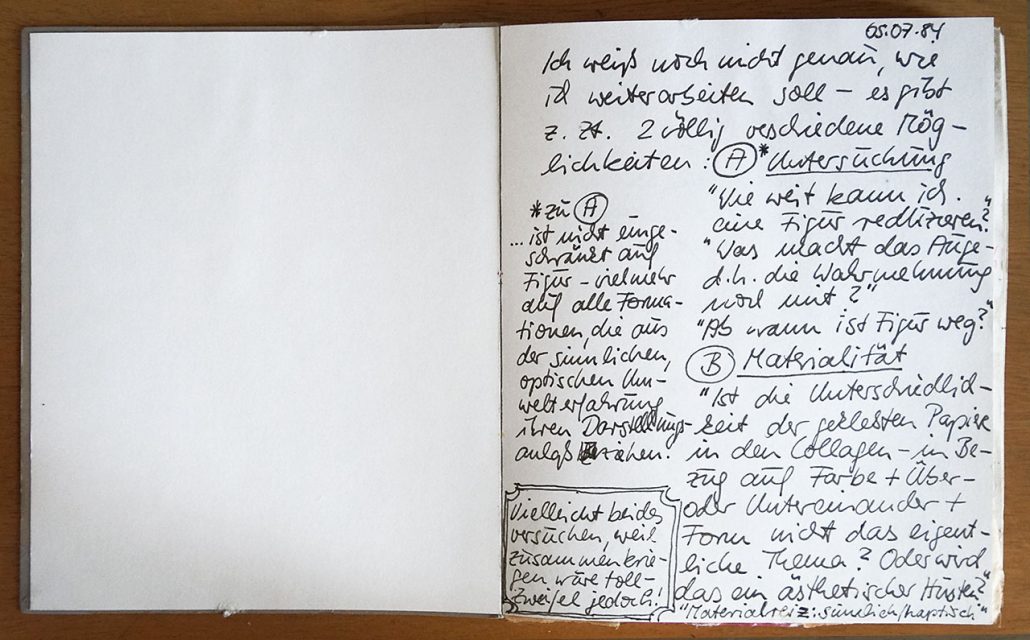 05.07.84
Ich weiß noch nicht genau, wie
ich weiterarbeiten soll – es gibt
z. Zt. 2 völlig verschiedene Mög-
lichkeiten: Ⓐ* Untersuchung
"Wie weit kann ich
eine Figur reduzieren?"
"Was macht das Auge –
d.h. die Wahrnehmung
noch mit?"
"Ab wann ist Figur weg?"
Ⓑ Materialität
"Ist die Unterschiedlich-
keit der geklebten Papiere
in den Collagen – in Be-
zug auf Farbe + Über-
oder Untereinander +
Form nicht das eigent-
liche Thema? Oder wird
das ein ästhetischer Husten?"
"Materialreiz: sinnlich/haptisch"
* zu Ⓐ
... ist nicht einge-
schränkt auf
Figur – vielmehr
auf alle Forma-
tionen, die aus
der sinnlichen,
optischen Um-
welterfahrung
ihren Darstellungs-
anlaß beziehen!
Vielleicht beides
versuchen, weil
zusammenkrie-
gen wäre toll –
Zweifel jedoch!